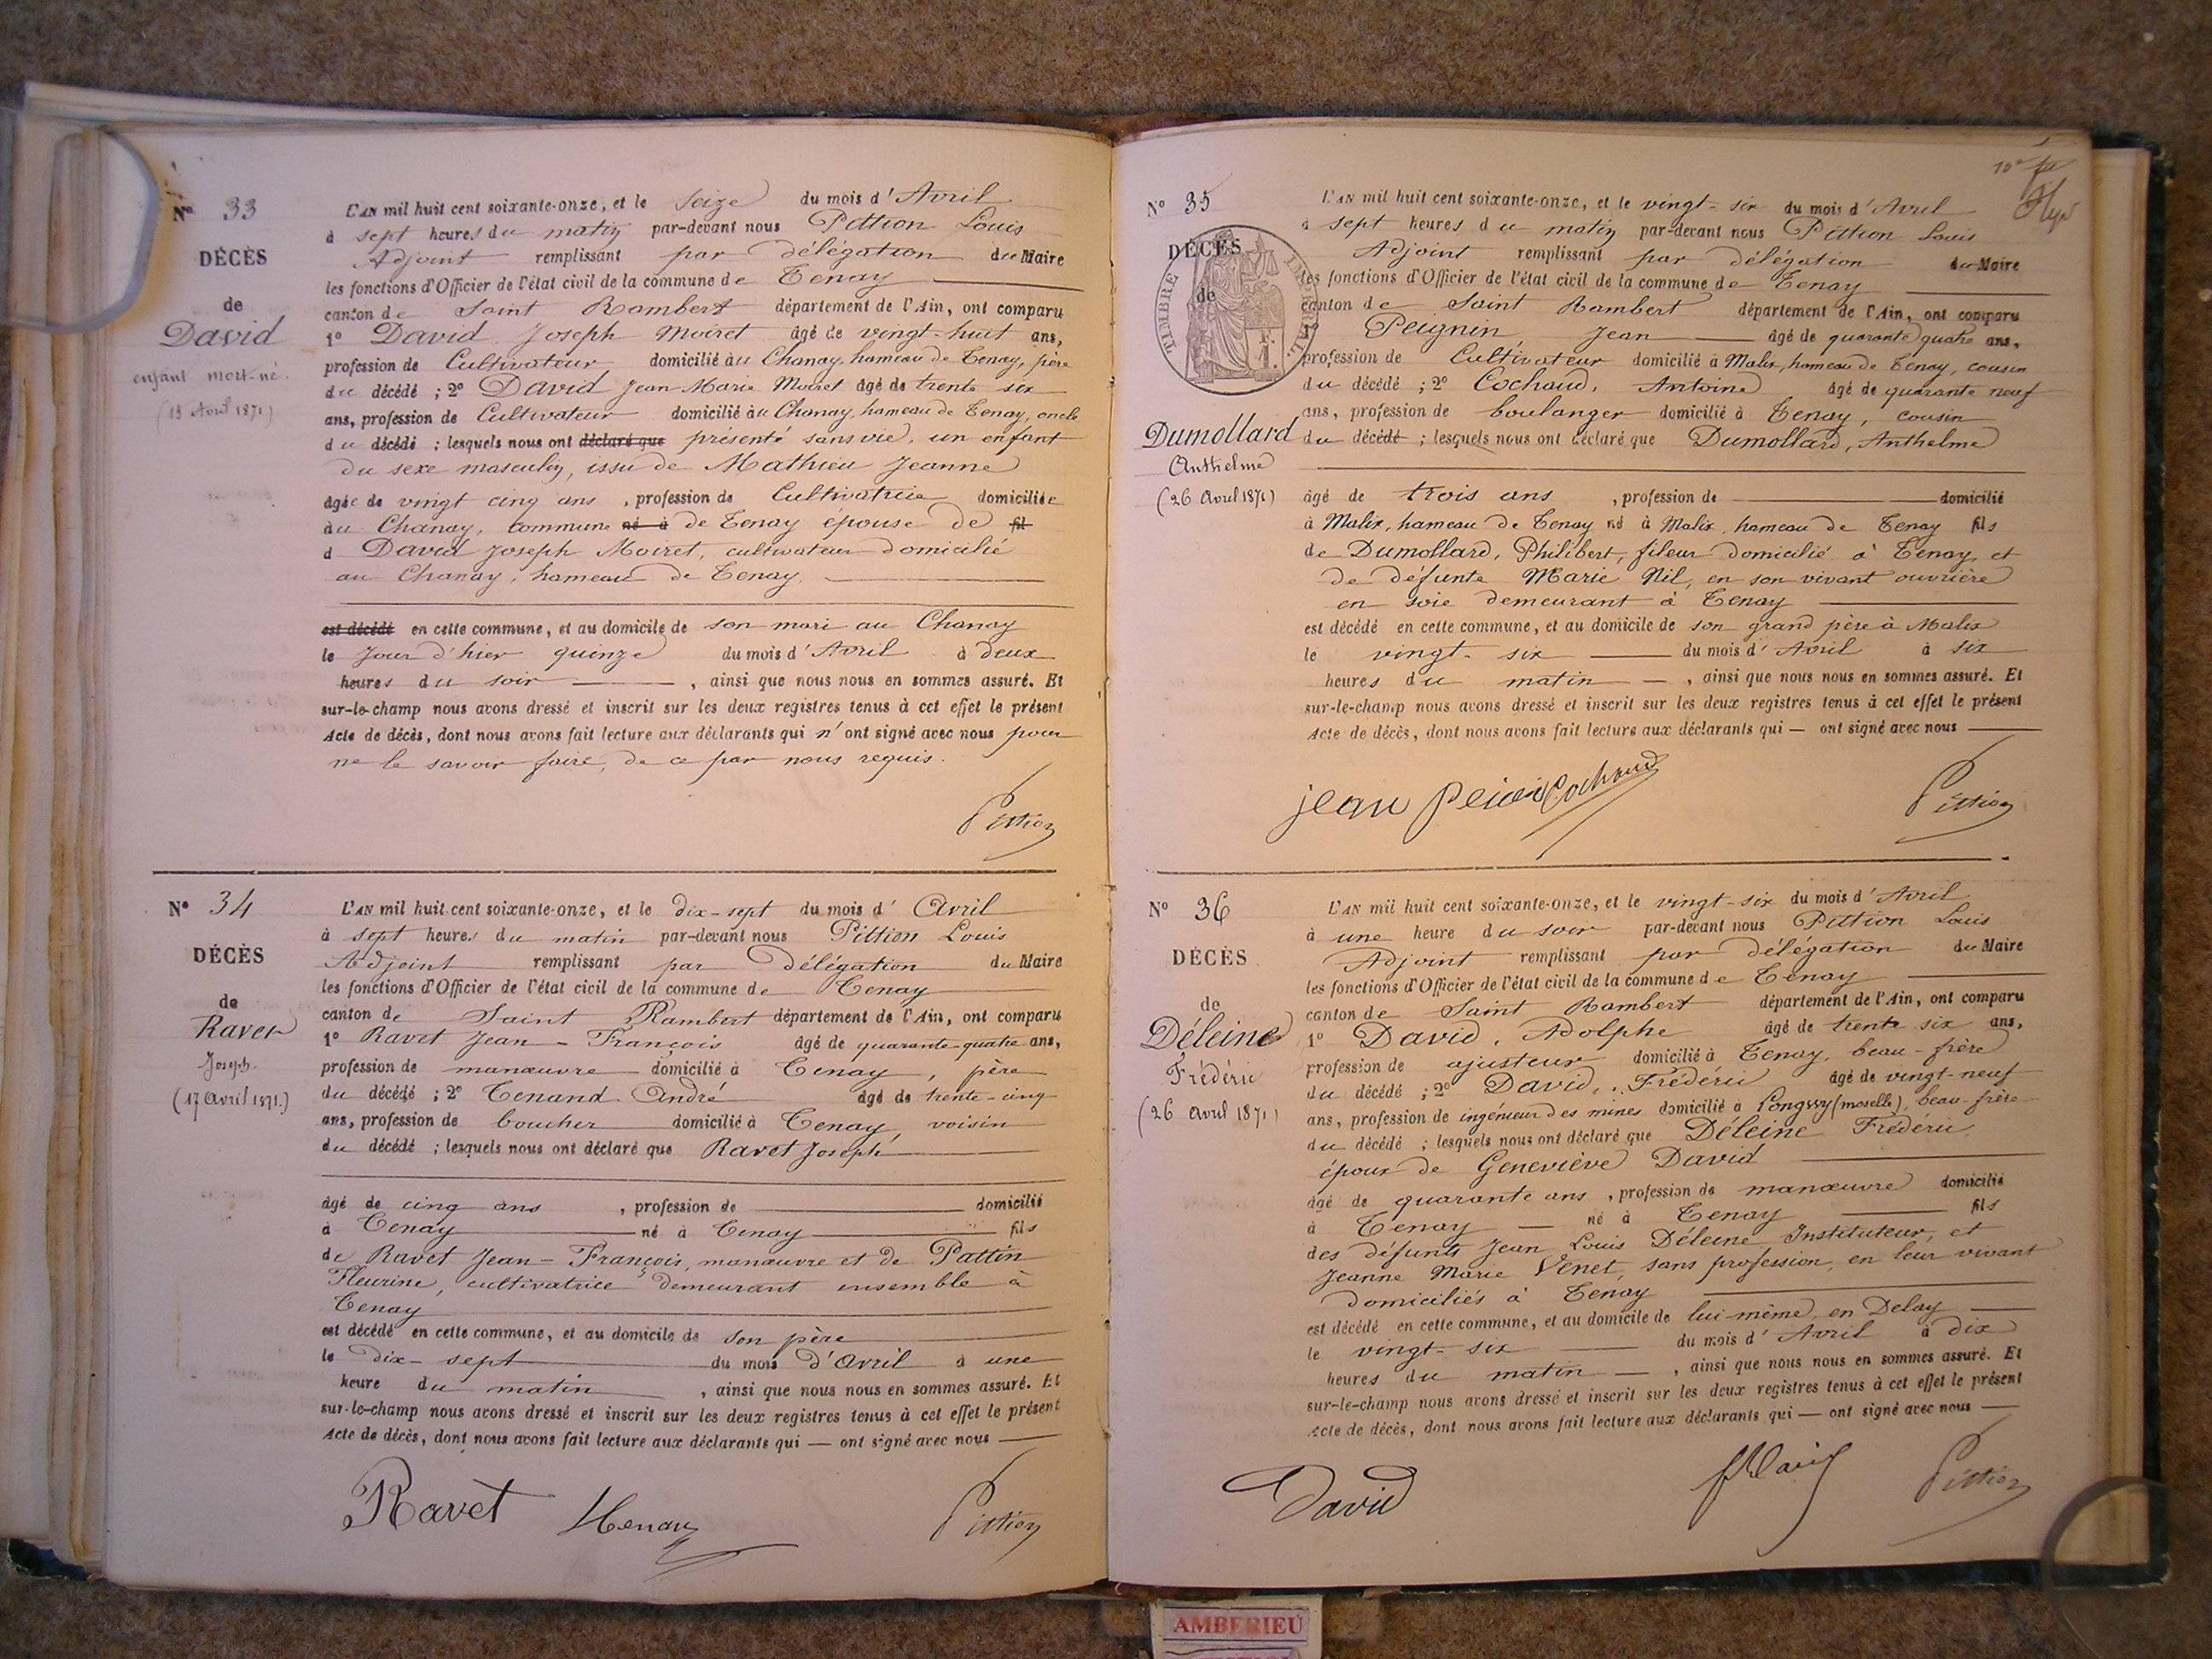 N° 33
DÉCÈS
de
David
enfant mort-né.
(15 Avril 1871)
L'AN mil huit cent soixante-onze, et le seize du mois d'Avril
à sept heures du matin par-devant nous Pittion Louis
Adjoint remplissant par délégation du Maire
les fonctions d'Officier de l'état civil de la commune de Tenay
canton de Saint Rambert département de l'Ain, ont comparu
1° David Joseph Moiret âgé de vingt-huit ans,
profession de Cultivateur domicilié au Chanay, hameau de Tenay, père
du décédé ; 2° David Jean-Marie Moiret âgé de trente six
ans, profession de Cultivateur domicilié au Chanay, hameau de Tenay, oncle
du décédé ; lesquels nous ont déclaré que présenté sans vie, un enfant
du sexe masculin, issu de Mathieu Jeanne
âgée de vingt cinq ans , profession de Cultivatrice domiciliée
au Chanay, commune né à de Tenay épouse de fil
d David Joseph Moiret, cultivateur domicilié
au Chanay, hameau de Tenay.
est décédé en cette commune, et au domicile de son mari au Chanay
le jour d'hier quinze du mois d'Avril à deux
heures du soir , ainsi que nous nous en sommes assuré. Et
sur-le-champ nous avons dressé et inscrit sur les deux registres tenus à cet effet le présent
Acte de décès, dont nous avons fait lecture aux déclarants qui n'ont signé avec nous pour
ne le savoir faire, de ce par nous requis.
Pittion
N° 34
DÉCÈS
de
Ravet
Joseph.
(17 avril 1871.)
L'AN mil huit cent soixante-onze, et le dix-sept du mois d' Avril
à sept heures du matin par-devant nous Pittion Louis
Adjoint remplissant par délégation du Maire
les fonctions d'Officier de l'état civil de la commune de Tenay
canton de Saint Rambert département de l'Ain, ont comparu
1° Ravet Jean-François âgé de quarante-quatre ans,
profession de manœuvre domicilié à Tenay, père
du décédé ; 2° Tenand André âgé de trente-cinq
ans, profession de boucher domicilié à Tenay, voisin
du décédé ; lesquels nous ont déclaré que Ravet Joseph
âgé de cinq ans , profession de domicilié
à Tenay né à Tenay fils
de Ravet Jean-François, manœuvre et de Pattin
Fleurine, cultivatrice demeurant ensemble à
Tenay
est décédé en cette commune, et au domicile de son père
le dix-sept du mois d'avril à une
heure du matin , ainsi que nous nous en sommes assuré. Et
sur-le-champ nous avons dressé et inscrit sur les deux registres tenus à cet effet le présent
Acte de décès, dont nous avons fait lecture aux déclarants qui — ont signé avec nous
Ravet
Pittion
N° 35
DÉCÈS
de
TIMBRE IMPÉRIAL
Dumollard
Anthelme
(26 avril 1871)
L'AN mil huit cent soixante-onze, et le vingt-six du mois d'Avril
à sept heures du matin par-devant nous Pittion Louis
Adjoint remplissant par délégation du Maire
les fonctions d'Officier de l'état civil de la commune de Tenay
canton de Saint Rambert département de l'Ain, ont comparu
1° Peignin Jean âgé de quarante quatre ans,
profession de Cultivateur domicilié à Malix, hameau de Tenay, cousin
du décédé ; 2° Cochaud, Antoine âgé de quarante neuf
ans, profession de boulanger domicilié à Tenay, cousin
du décédé ; lesquels nous ont déclaré que Dumollard, Anthelme
âgé de trois ans , profession de domicilié
à Malix, hameau de Tenay né à Malix hameau de Tenay fils
de Dumollard, Philibert, fileur domicilié à Tenay, et
de défunte Marie Nil, en son vivant ouvrière
en soie demeurant à Tenay
est décédé en cette commune, et au domicile de son grand père à Malix
le vingt-six du mois d'Avril à six
heures du matin , ainsi que nous nous en sommes assuré. Et
sur-le-champ nous avons dressé et inscrit sur les deux registres tenus à cet effet le présent
Acte de décès, dont nous avons fait lecture aux déclarants qui — ont signé avec nous
jean Cochaud
Pittion
N° 36
DÉCÈS
de
Déleine
Frédéric
(26 avril 1871)
L'AN mil huit cent soixante-onze, et le vingt-six du mois d'Avril
à une heure du soir par-devant nous Pittion Louis
Adjoint remplissant par délégation du Maire
les fonctions d'Officier de l'état civil de la commune de Tenay
canton de Saint Rambert département de l'Ain, ont comparu
1° David, Adolphe âgé de trente six ans,
profession de ajusteur domicilié à Tenay, beau-frère
du décédé ; 2° David, Frédéric âgé de vingt-neuf
ans, profession de ingénieur des mines domicilié à Longwy (moselle), beau-frère
du décédé ; lesquels nous ont déclaré que Déleine Frédéric,
époux de Geneviève David
âgé de quarante ans , profession de manœuvre domicilié
à Tenay — né à Tenay fils
des défunts Jean Louis Déleine Instituteur, et
Jeanne Marie Venet, sans profession, en leur vivant
domiciliés à Tenay
est décédé en cette commune, et au domicile de lui-même, en Delay
le vingt-six du mois d'Avril à dix
heures du matin , ainsi que nous nous en sommes assuré. Et
sur-le-champ nous avons dressé et inscrit sur les deux registres tenus à cet effet le présent
Acte de décès, dont nous avons fait lecture aux déclarants qui — ont signé avec nous
David
Pittion
AMBERIEU